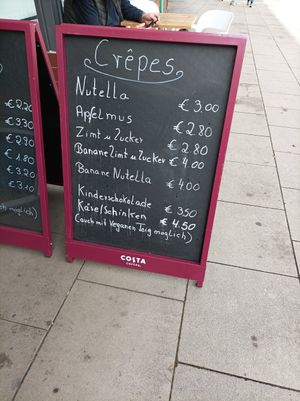 Crêpes
Nutella € 3.00
Apfelmus € 2.80
Zimt u Zucker € 2.80
Banane Zimt u Zucker € 4.00
Banane Nutella € 4.00
Kinderschokolade € 350
Käse/Schinken € 4.50
(auch mit Veganen Teig möglich)
COSTA
COFFEE
€ 2.20
€ 3.30
€ 2.90
€ 1.80
€ 3.20
€ 3.10